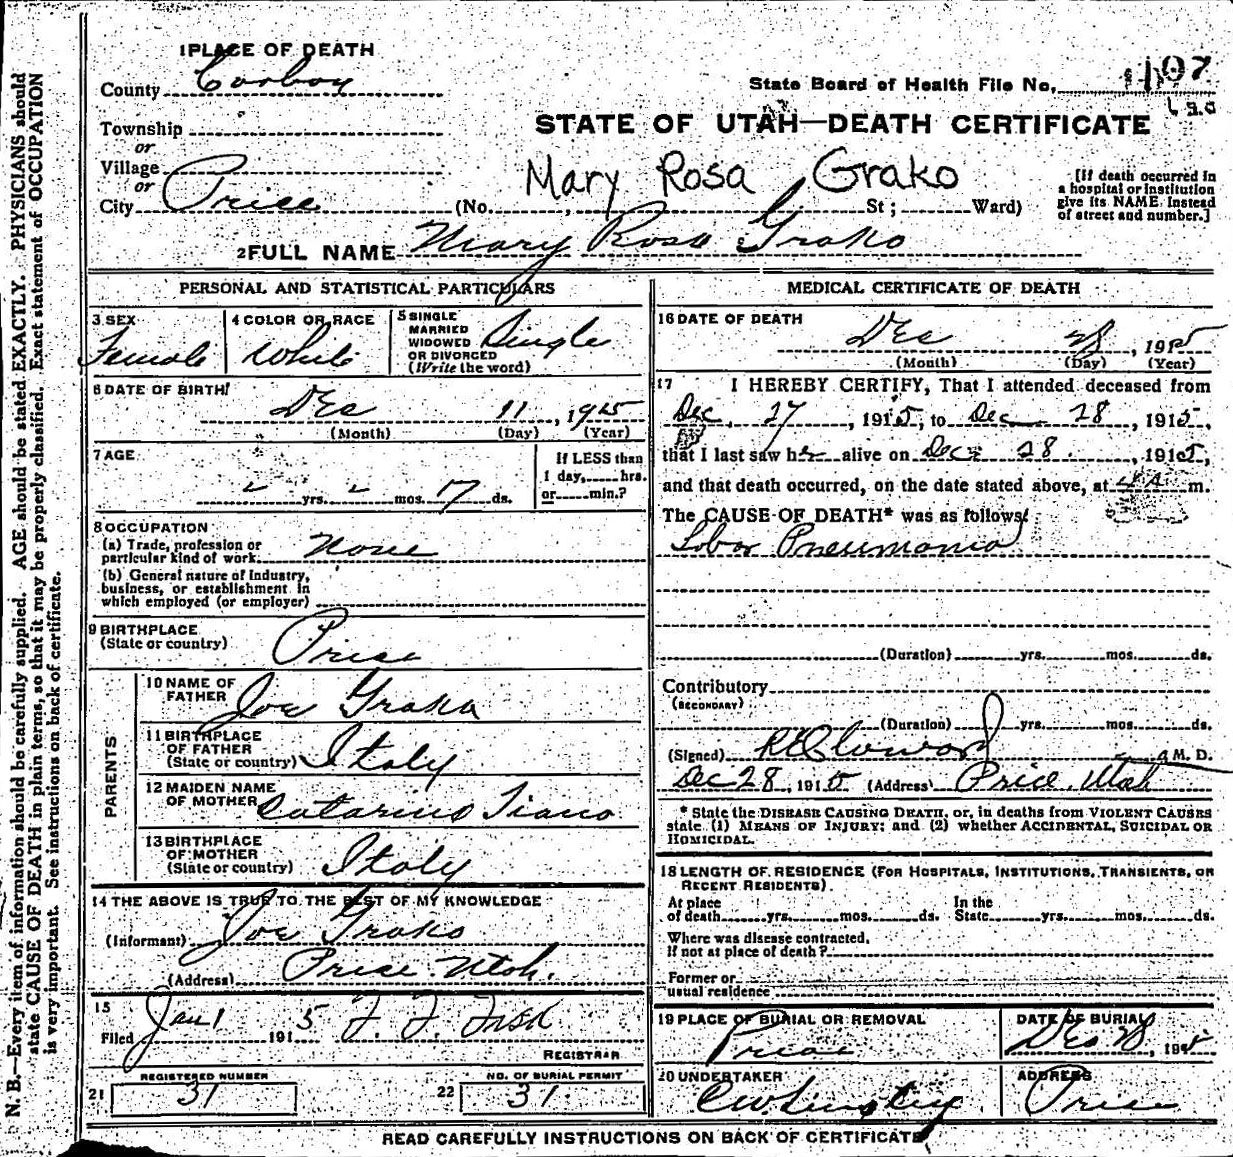 1 PLACE OF DEATH
County Carbon
State Board of Health File No. 107
Township
or
STATE OF UTAH—DEATH CERTIFICATE
Village
or
Mary Rosa Grako
[If death occurred in a hospital or institution give its NAME instead of street and number.]
City Price (No. , St ; Ward)
2 FULL NAME Mary Rosa Grako
PERSONAL AND STATISTICAL PARTICULARS
3 SEX
Female
4 COLOR OR RACE
White
5 SINGLE
MARRIED
WIDOWED
OR DIVORCED
(Write the word)
Single
6 DATE OF BIRTH
Dec 11, 1915
(Month) (Day) (Year)
7 AGE
yrs. mos. 17 ds.
If LESS than
1 day, hrs.
or min.?
8 OCCUPATION
(a) Trade, profession or
particular kind of work None
(b) General nature of Industry,
business, or establishment in
which employed (or employer)
9 BIRTHPLACE
(State or country) Price
PARENTS
10 NAME OF
FATHER Joe Grako
11 BIRTHPLACE
OF FATHER
(State or country) Italy
12 MAIDEN NAME
OF MOTHER Catarino Tiano
13 BIRTHPLACE
OF MOTHER
(State or country) Italy
14 THE ABOVE IS TRUE TO THE BEST OF MY KNOWLEDGE
(Informant) Joe Grako
(Address) Price Utah.
15
Filed Jan 1 1915
REGISTRAR
REGISTERED NUMBER
21 31
NO. OF BURIAL PERMIT
22 31
MEDICAL CERTIFICATE OF DEATH
16 DATE OF DEATH
Dec 28, 1915
(Month) (Day) (Year)
17 I HEREBY CERTIFY, That I attended deceased from
Dec. 27, 1915, to Dec 28, 1915,
that I last saw her alive on Dec 28, 1915,
and that death occurred, on the date stated above, at 4 A m.
The CAUSE OF DEATH* was as follows:
Lobar Pneumonia
(Duration) yrs. mos. ds.
Contributory
(SECONDARY)
(Duration) yrs. mos. ds.
(Signed) M. D.
Dec 28, 1915 (Address) Price, Utah
* State the DISEASE CAUSING DEATH, or, in deaths from VIOLENT CAUSES
state (1) MEANS OF INJURY; and (2) whether ACCIDENTAL, SUICIDAL OR
HOMICIDAL.
18 LENGTH OF RESIDENCE (FOR HOSPITALS, INSTITUTIONS, TRANSIENTS, OR
RECENT RESIDENTS).
At place
of death yrs. mos. ds.
In the
State yrs. mos. ds.
Where was disease contracted,
If not at place of death?
Former or
usual residence
19 PLACE OF BURIAL OR REMOVAL
Price
DATE OF BURIAL
Dec 28, 1915
20 UNDERTAKER
ADDRESS
Price
READ CAREFULLY INSTRUCTIONS ON BACK OF CERTIFICATE
N. B.—Every item of information should be carefully supplied. AGE should be stated EXACTLY. PHYSICIANS should
state CAUSE OF DEATH in plain terms, so that it may be properly classified. Exact statement of OCCUPATION
is very important. See instructions on back of certificate.